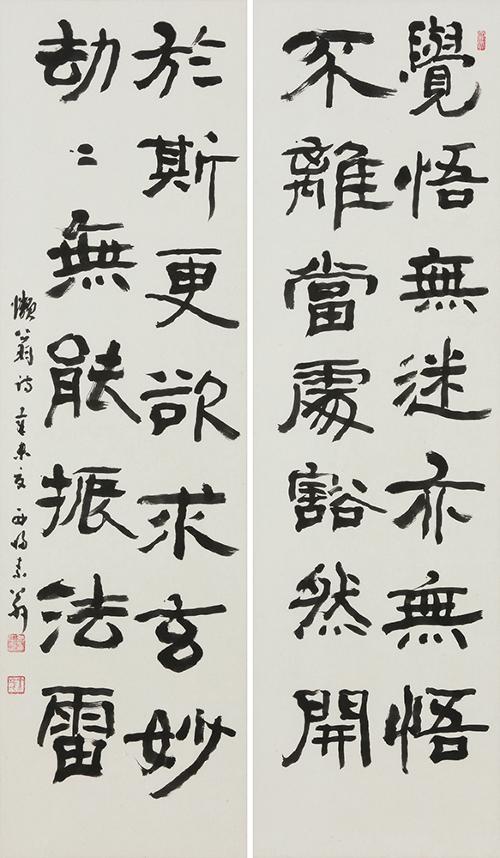 覺悟無迷亦無悟
不離當處豁然開
於斯更欲求玄妙
劫〻無能振法雷
懶翁詩 素翁